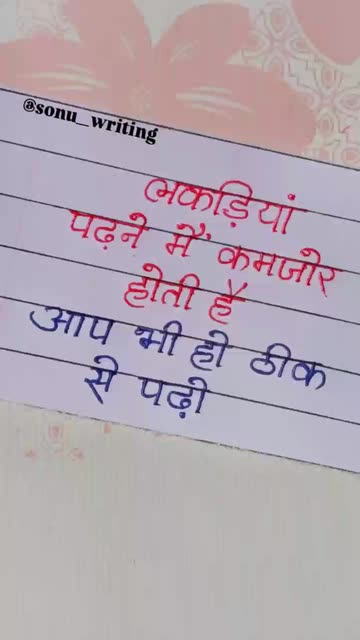 @sonu_writing
लकड़ियां
पढ़ने में कमजोर
होती है
आप भी हो ठीक
से पढ़ो